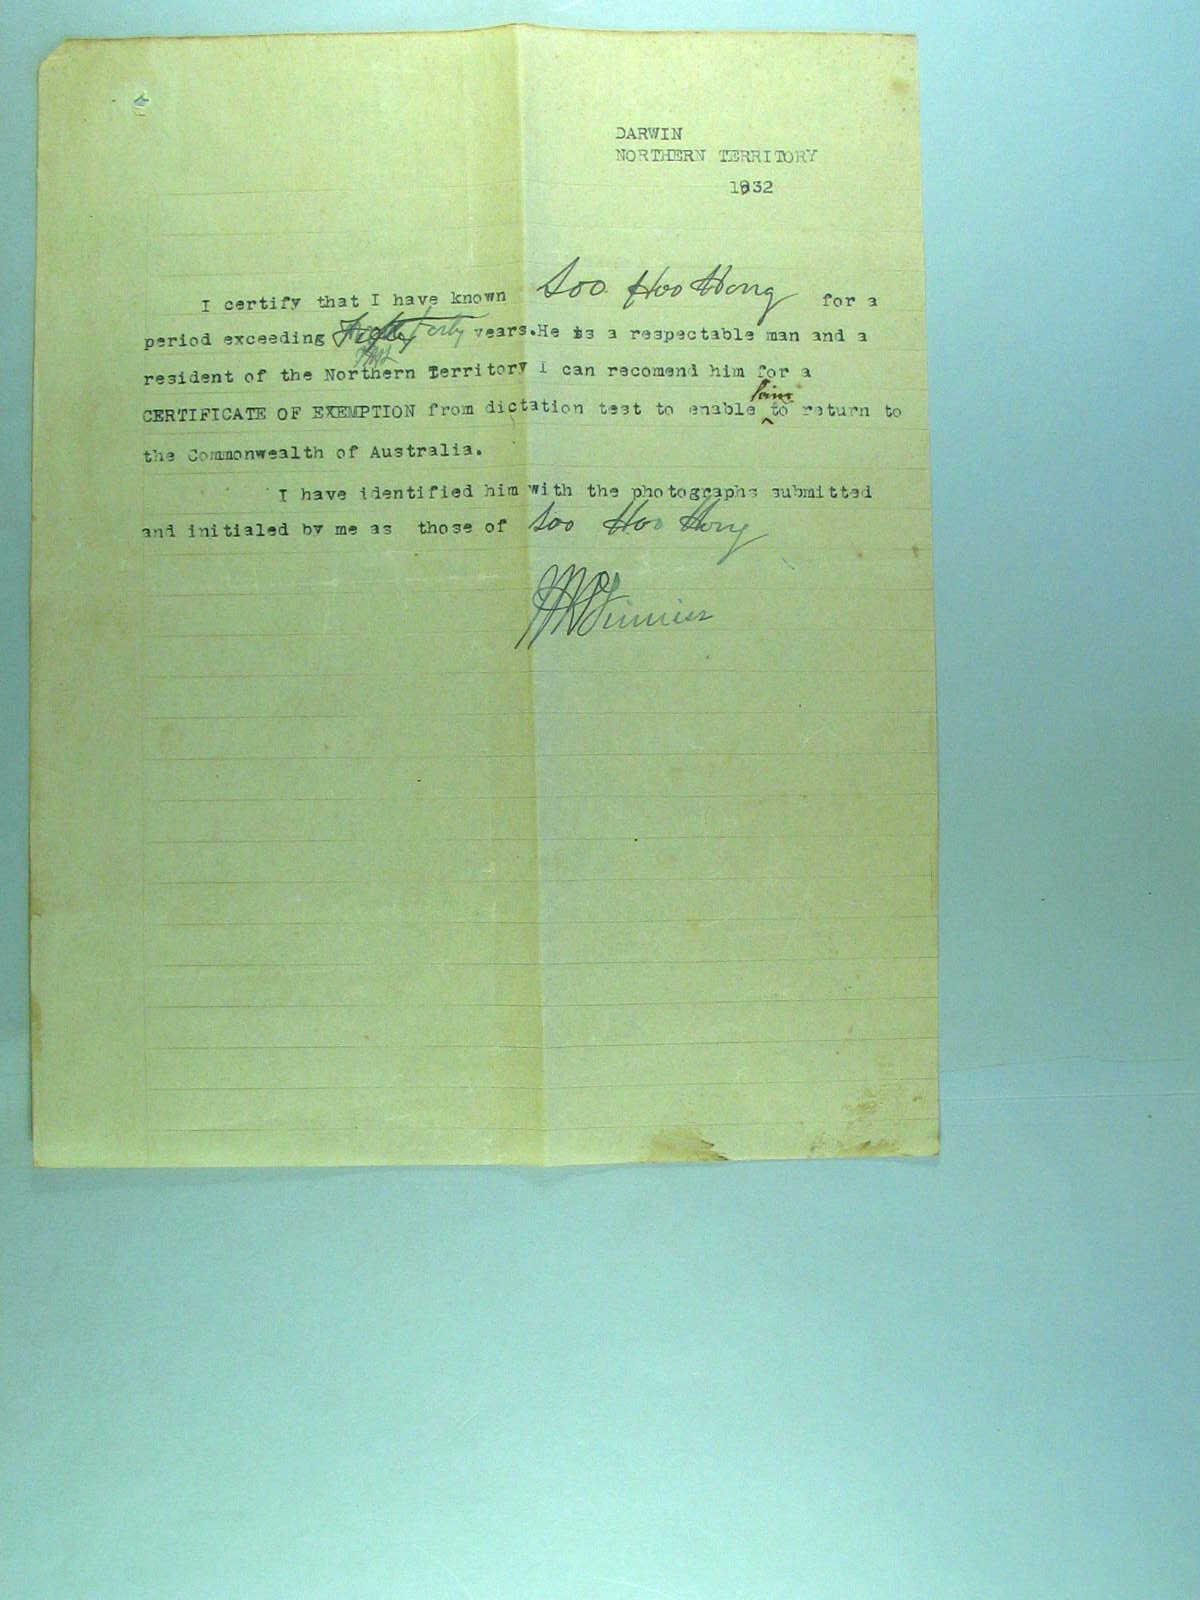 DARWIN
NORTHERN TERRITORY
1932
I certify that I have known Soo Hoo Hong for a
period exceeding forty years.He is a respectable man and a
resident of the Northern Territory I can recomend him for a
him
CERTIFICATE OF EXEMPTION from dictation test to enable to return to
the Commonwealth of Australia.
I have identified him with the photographs submitted
and initialed by me as those of Soo Hoo Hong